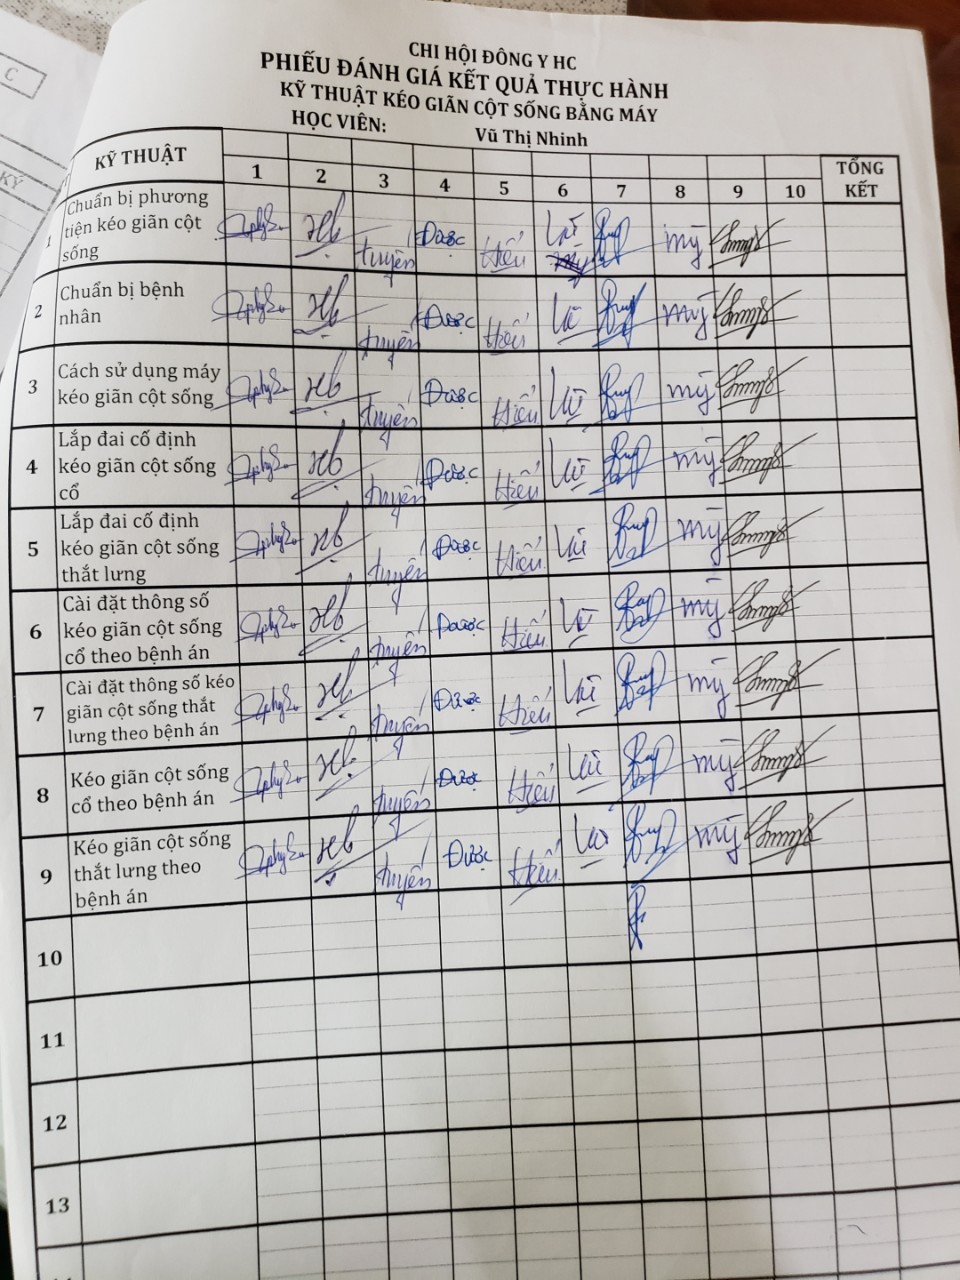 C
KÝ
CHI HỘI ĐÔNG Y HC
PHIẾU ĐÁNH GIÁ KẾT QUẢ THỰC HÀNH
KỸ THUẬT KÉO GIÃN CỘT SỐNG BẰNG MÁY
HỌC VIÊN: Vũ Thị Nhinh
KỸ THUẬT 1 2 3 4 5 6 7 8 9 10 TỔNG
KẾT
1 Chuẩn bị phương
tiện kéo giãn cột
sống
truyền Được Hiếu Vũ mỹ
2 Chuẩn bị bệnh
nhân
truyền Được Hiếu Vũ mỹ
3 Cách sử dụng máy
kéo giãn cột sống
truyền Được Hiếu Vũ mỹ
4 Lắp đai cố định
kéo giãn cột sống
cổ
truyền Được Hiếu Vũ mỹ
5 Lắp đai cố định
kéo giãn cột sống
thắt lưng
truyền Được Hiếu Vũ mỹ
6 Cài đặt thông số
kéo giãn cột sống
cổ theo bệnh án
truyền Được Hiếu Vũ mỹ
7 Cài đặt thông số kéo
giãn cột sống thắt
lưng theo bệnh án
truyền Được Hiếu Vũ mỹ
8 Kéo giãn cột sống
cổ theo bệnh án
truyền Được Hiếu Vũ mỹ
9 Kéo giãn cột sống
thắt lưng theo
bệnh án
truyền Được Hiếu Vũ mỹ
10
11
12
13